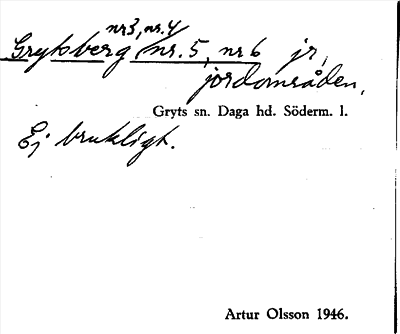 nr 3, nr. 4
Grytsberg nr. 5, nr 6 jr,
jordområden,
Gryts sn. Daga hd. Söderm. l.
Ej brukligt.
Artur Olsson 1946.